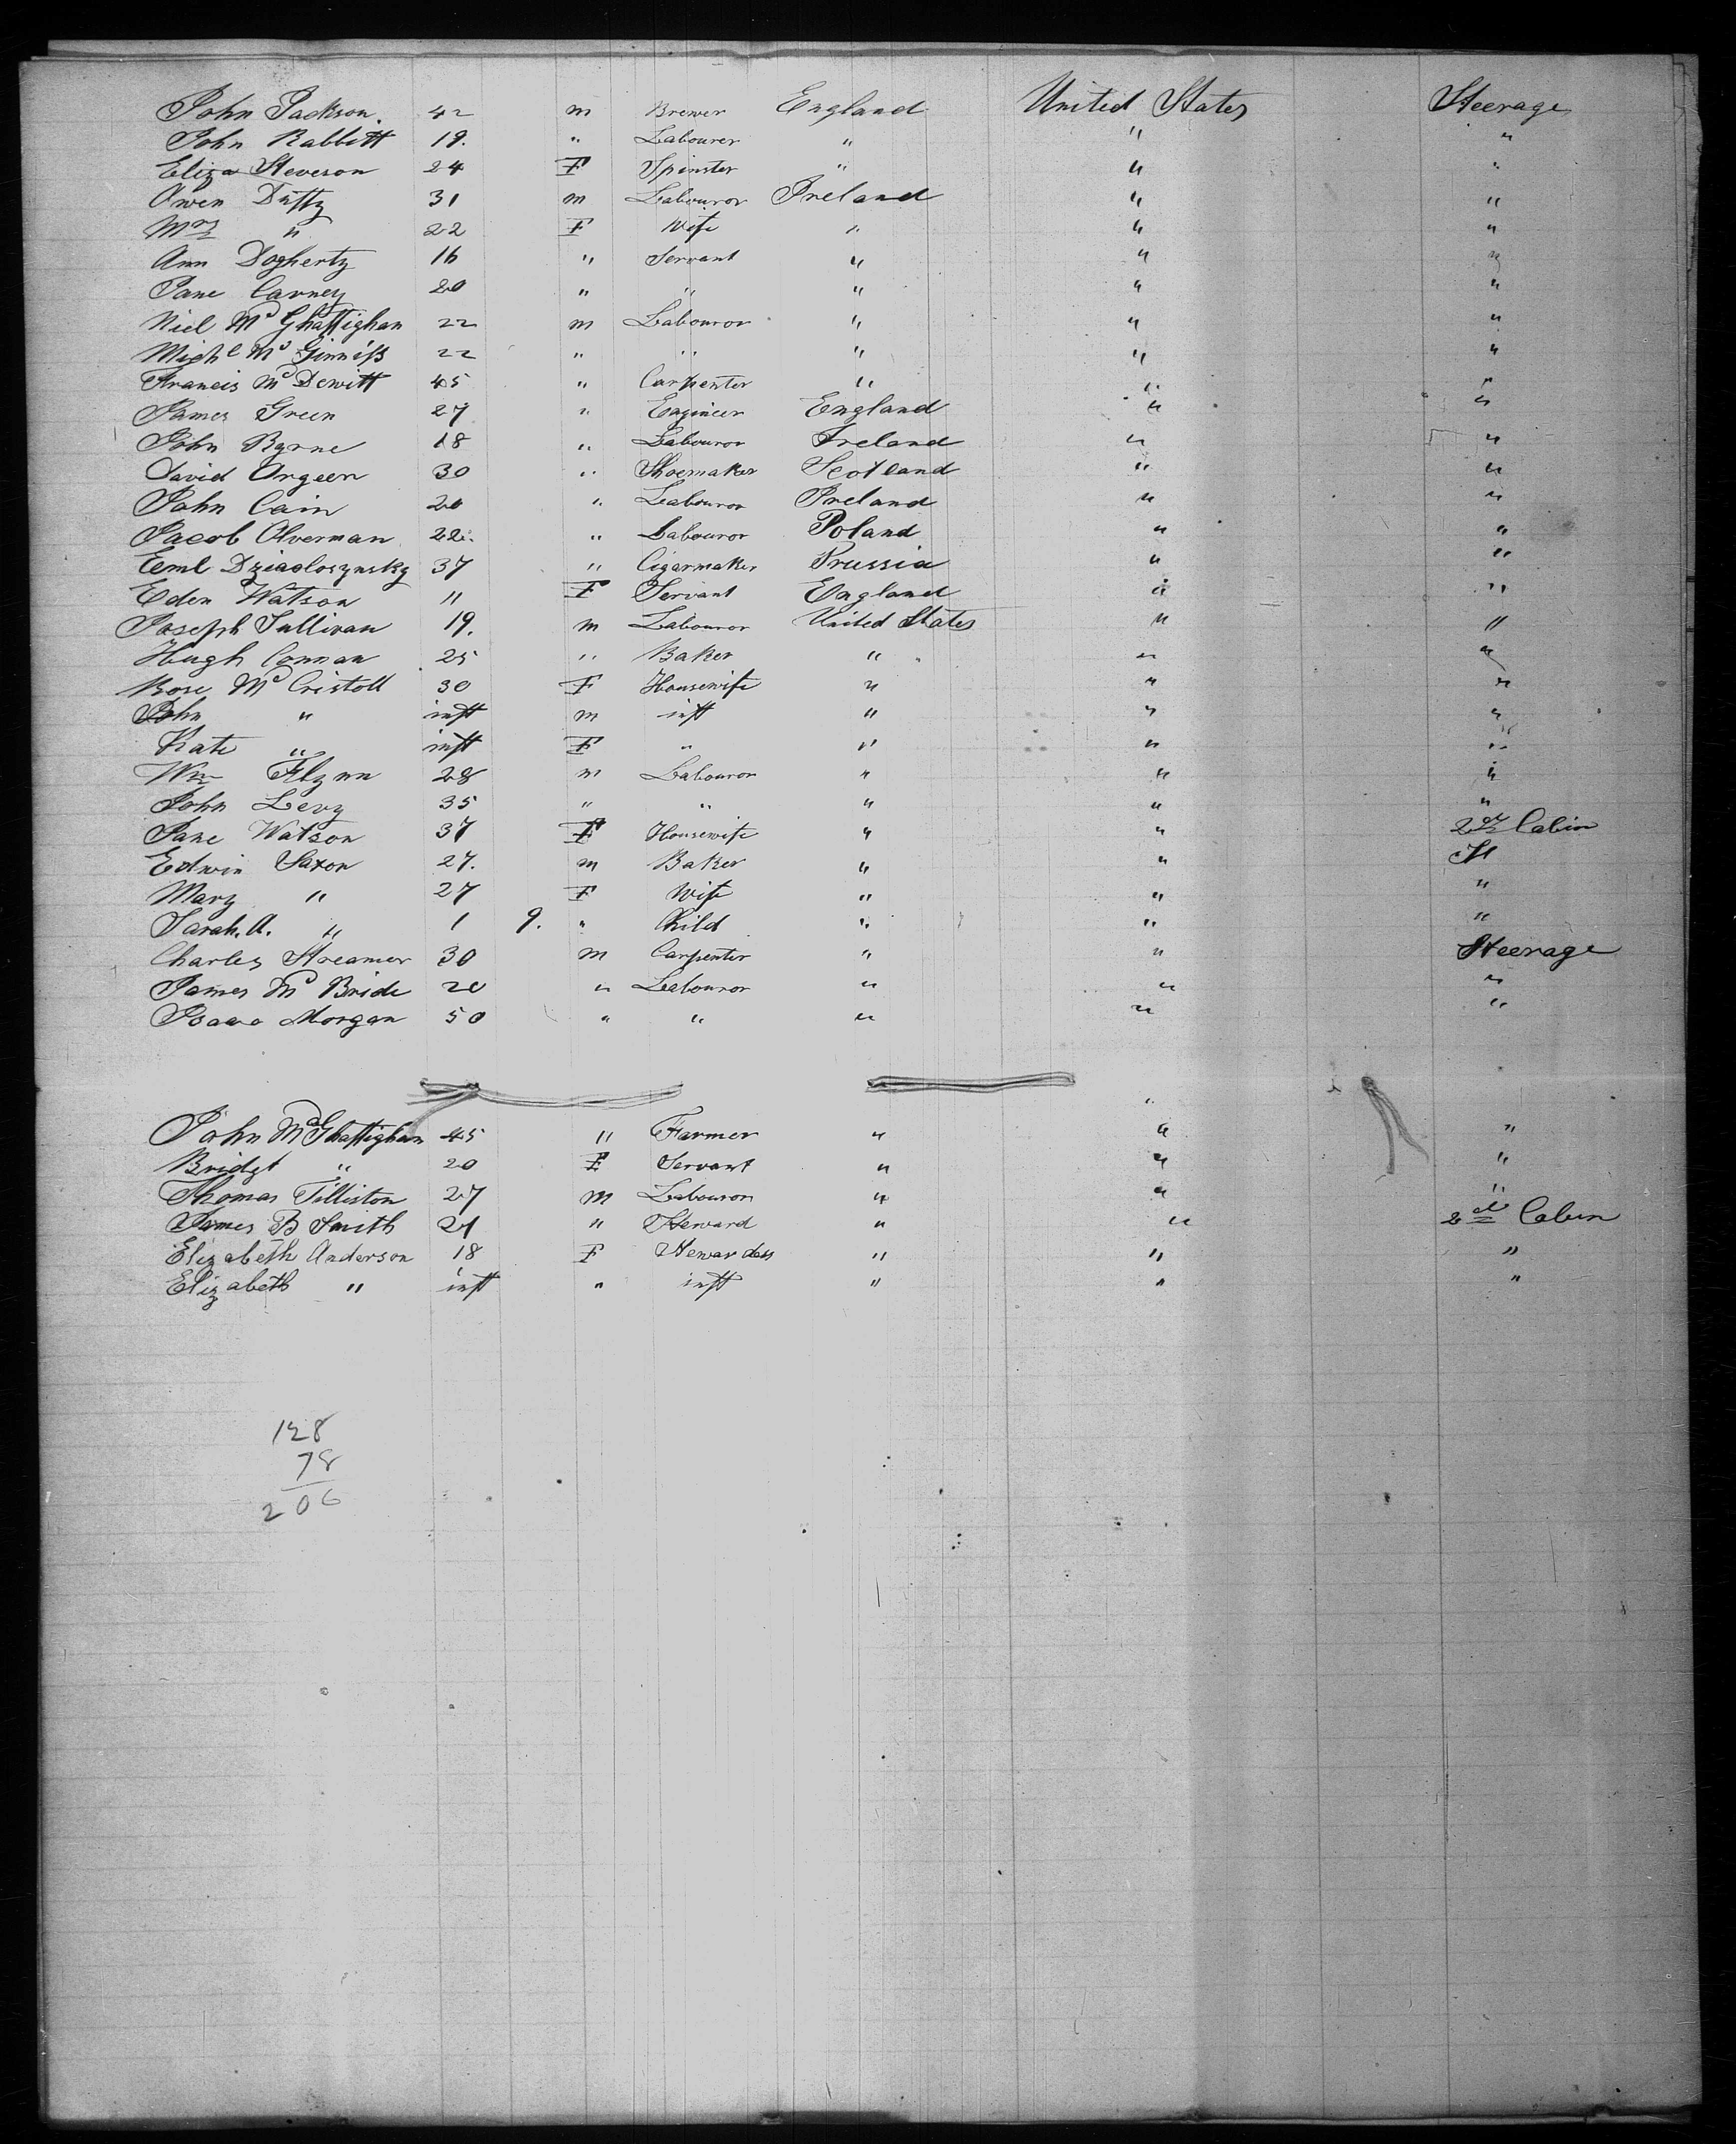 John Jackson. 42 m Brewer England United States Steerage
John Rabbitt 19. " Labourer " " "
Eliza Steveson 24 F Spinster " " "
Owen Duffy 31 m Labouror Ireland " "
Mrs " 22 F Wife " " "
Ann Dogherty 16 " Servant " " "
Jane Carney 20 " " " " "
Niel McGhaffighan 22 m Labouror " " "
Mighl McGinniss 22 " " " " "
Francis McDewitt 45 " Carpenter " " "
James Green 27 " Engineer England " "
John Byrne 18 " Labouror Ireland " "
David Orgeen 30 " Shoemaker Scotland " "
John Cain 20 " Labouror Ireland " "
Jacob Olverman 22 " Labouror Poland " "
Eeml Dziadloszynsky 37 " Cigarmaker Prussia " "
Eden Watson 11 F Servant England " "
Joseph Sullivan 19. m Labouror United States " "
Hugh Connan 25 " Baker " " "
Rose McCristoll 30 F Housewife " " "
John " inft m inft " " "
Kate " inft F " " " "
Wm Flynn 28 m Labouror " " "
John Levy 35 " " " " "
Jane Watson 37 F Housewife " " 2nd Cabin
Edwin Saxon 27. m Baker " " "
Mary " 27 F Wife " " "
Sarah. A. " 1 9. " Child " " "
Charles Streamer 30 m Carpenter " " Steerage
James McBride 20 " Labouror " " "
Isaac Morgan 50 " " " " "
John McGhaffighan 45 " Farmer " " "
Bridgt " 20 F Servant " " "
Thomas Tilliston 27 m Labouror " " "
James B Smith 21 " Steward " " 2nd Cabin
Elizabeth Anderson 18 F Stewardess " " "
Elizabeth " inft " inft " " "
128
78
206